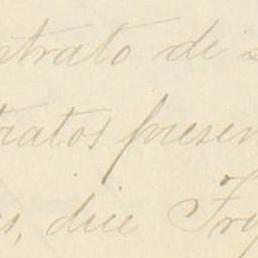 ntrato de
tratos presen
s, dice Fry